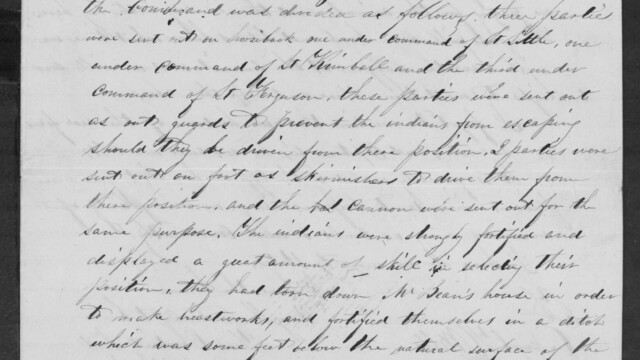 the Command was divided as follows, three parties
were sent out on horseback one under command of Lt Little, one
under command of Lt Kimball and the third under
command of Lt Ferguson, these parties were sent out
as out guards to prevent the indians from escaping
should they be driven from there position. 2 parties were
sent out on foot as skirmishers to drive them from
there position, and the cannon were sent out for the
same purpose. The indians were strongly fortified and
displayed a great amount of skill in selecting their
position, they had torn down McBean's house in order
to make breastworks, and fortified themselves in a ditch
which was some feet below the natural surface of the